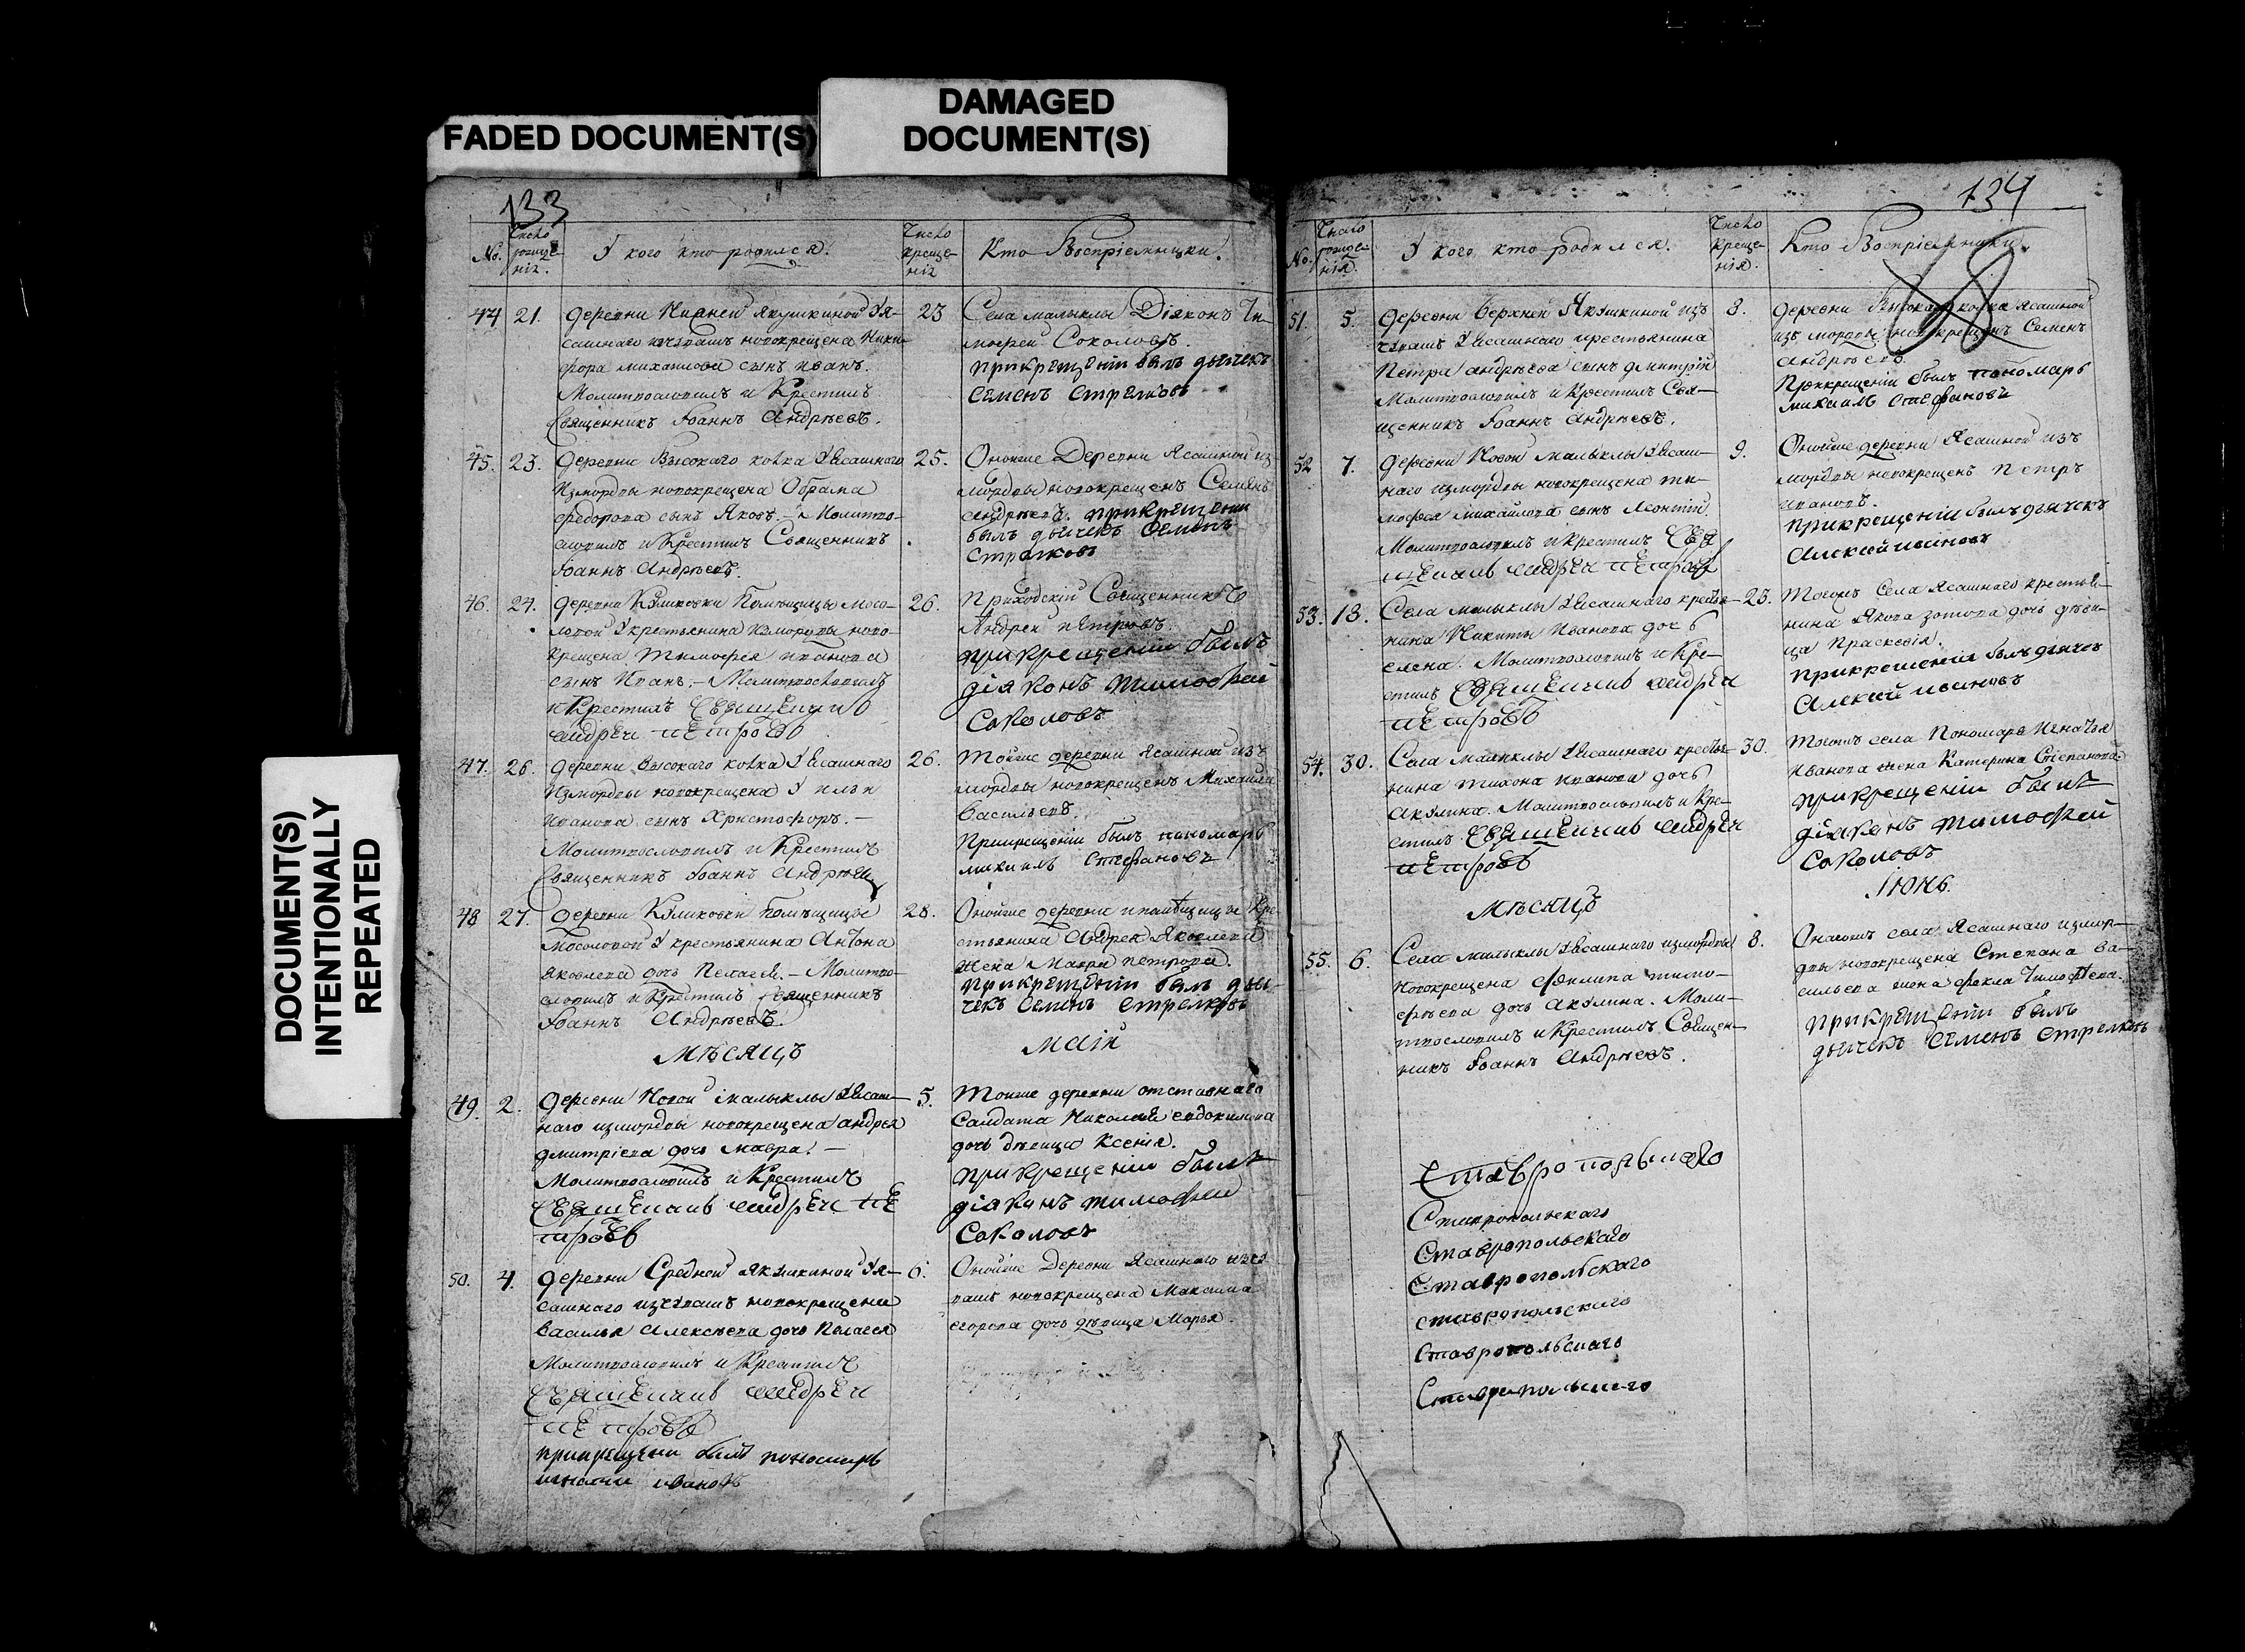 FADED DOCUMENT(S)
DAMAGED
DOCUMENT(S)
DOCUMENT(S)
INTENTIONALLY
REPEATED
133
No.
Число рожде-
нія.
У кого кто родился.
Число
креще-
нія
Кто Воспріемники.
44
21.
деревни Нижней Якушкиной У я-
сашнаго изчувашъ новокрещена Ники-
фора михаилова сынъ иванъ.
Молитвословилъ и Крестилъ
Священникъ Іоаннъ Андрѣевъ.
23
Села малыклы Діяконъ Ти-
мофей Соколовъ.
прикрещеніи былъ дьячекъ
Семенъ Стрелковъ
45.
23.
деревни Высокаго колка У Ясашнаго
Измордвы новокрещена Обрама
федорова сынъ Яковъ. – Молитво-
словилъ и Крестилъ Священникъ
Іоаннъ Андрѣевъ.
25.
Оноиже Деревни Ясашной из
мордвы новокрещенъ Семенъ
андрѣевъ. прикрещении
былъ дьячекъ Семенъ
Стрелковъ
46.
24.
деревни Куликовки Помѣщицы Мосо-
ловой У крестьянина Измордвы ново-
крещена Тимофея иванова
сынъ Иванъ. – Молитвословилъ
и Крестилъ Священникъ
андреи петровъ
26.
Приходскій Священникъ
Андрей петровъ.
прикрещеніи былъ
діяконъ тимофей
Соколовъ
47.
26.
деревни высокаго колка У Ясашнаго
Измордвы новокрещена У ильи
Иванова сынъ Христофоръ. –
Молитвословилъ и Крестилъ
Священникъ Іоаннъ Андрѣевъ
26.
Тоиже деревни Ясашной изъ
мордвы новокрещенъ Михаила
Васильевъ.
Прикрещеніи былъ пономарь
михаилъ Стефановъ
48
27.
деревни Куликовки помѣщицы
Мосоловой У крестьянина Антона
Яковлева дочь Пелагея. – Молитво-
словилъ и Крестилъ Священникъ
Іоаннъ Андрѣевъ.
28.
Оноиже деревни помѣщицы Кре-
стьянина Андрея Яковлева
жена Мавра петрова.
прикрещеніи былъ дья-
чекъ Семенъ Стрелковъ
Мѣсяцъ
Маій
49.
2.
деревни Новой малыклы У Ясаш-
наго измордвы новокрещена андрея
дмитріева дочь мавра. –
Молитвословилъ и Крестилъ
Священникъ андреи пе
тровъ
5.
Тоиже деревни отставнаго
Салдата Николая евдокимова
дочь дѣвица Ксенія.
прикрещеніи былъ
діяконъ тимофеи
Соколовъ
50.
4.
деревни Средней Якушкиной У я-
сашнаго изчувашъ новокрещена
Василья Алексѣева дочь Пелагея
Молитвословилъ и Крестилъ
Священникъ андреи
петровъ
прикрещени былъ пономарь
игнатии ивановъ
6.
Оноиже Деревни Ясашнаго изчу
вашъ новокрещена Максима
егорова дочь дѣвица Марья.
134
No.
Число
рожде-
нія.
У кого кто родился.
Число
креще-
нія.
Кто Воспріемники.
51.
5.
деревни Верхней Якушкиной изъ
чувашъ У Ясашнаго крестьянина
Петра андрѣева сынъ дмитрій
Молитвословилъ и Крестилъ Свя-
щенникъ Іоаннъ Андрѣевъ.
8.
деревни Высокаго колка Ясашной
изъ мордвы новокрещенъ Семенъ
андрѣевъ.
Прикрещеніи былъ пономарь
михаилъ Стефановъ
52
7.
деревни Новой малыклы У Ясаш-
наго измордвы новокрещена ти-
мофея михайлова сынъ Леонтій
Молитвословилъ и крестилъ Свя
щеникъ андреи петровъ
9.
Оноиже деревни Ясашной изъ
мордвы новокрещенъ петръ
ивановъ.
прикрещеніи былъ дьячекъ
Алексѣй ивановъ
53.
13.
Села малыклы У Ясашнаго кресть-
янина Никиты Иванова дочь
елена. Молитвословилъ и Кре-
стилъ Священикъ андреи
петровъ
25.
Тогожъ Села Ясашнаго крестья-
нина Якова зотова дочь дѣви-
ца Праскевія.
прикрещеніи былъ дьячекъ
Алексѣй ивановъ
54.
30.
Села малыклы У Ясашнаго кресть-
янина тихона иванова дочь
акулина. Молитвословилъ и Кре-
стилъ Священикъ андреи
петровъ
30.
Тогожъ села Пономаря Игнатья
Иванова жена Катерина Степанова.
прикрещеніи былъ
діяконъ тимофей
Соколовъ
Мѣсяцъ
Іюнь.
55.
6.
Села малыклы У Ясашнаго измордвы
новокрещена филипа тимо-
фѣева дочь акулина. Моли-
твословилъ и Крестилъ Священ-
никъ Іоаннъ Андрѣевъ.
8.
Оногожъ села Ясашнаго измор-
двы новокрещена Степана ва-
сильева жена фекла Тимофѣева.
прикрещеніи былъ
дьячекъ Семенъ Стрелковъ
Ставропольнаго
Ставропольскаго
Ставропольскаго
Ставропольскаго
ставропольскаго
Ставропольскаго
Ставропольскаго